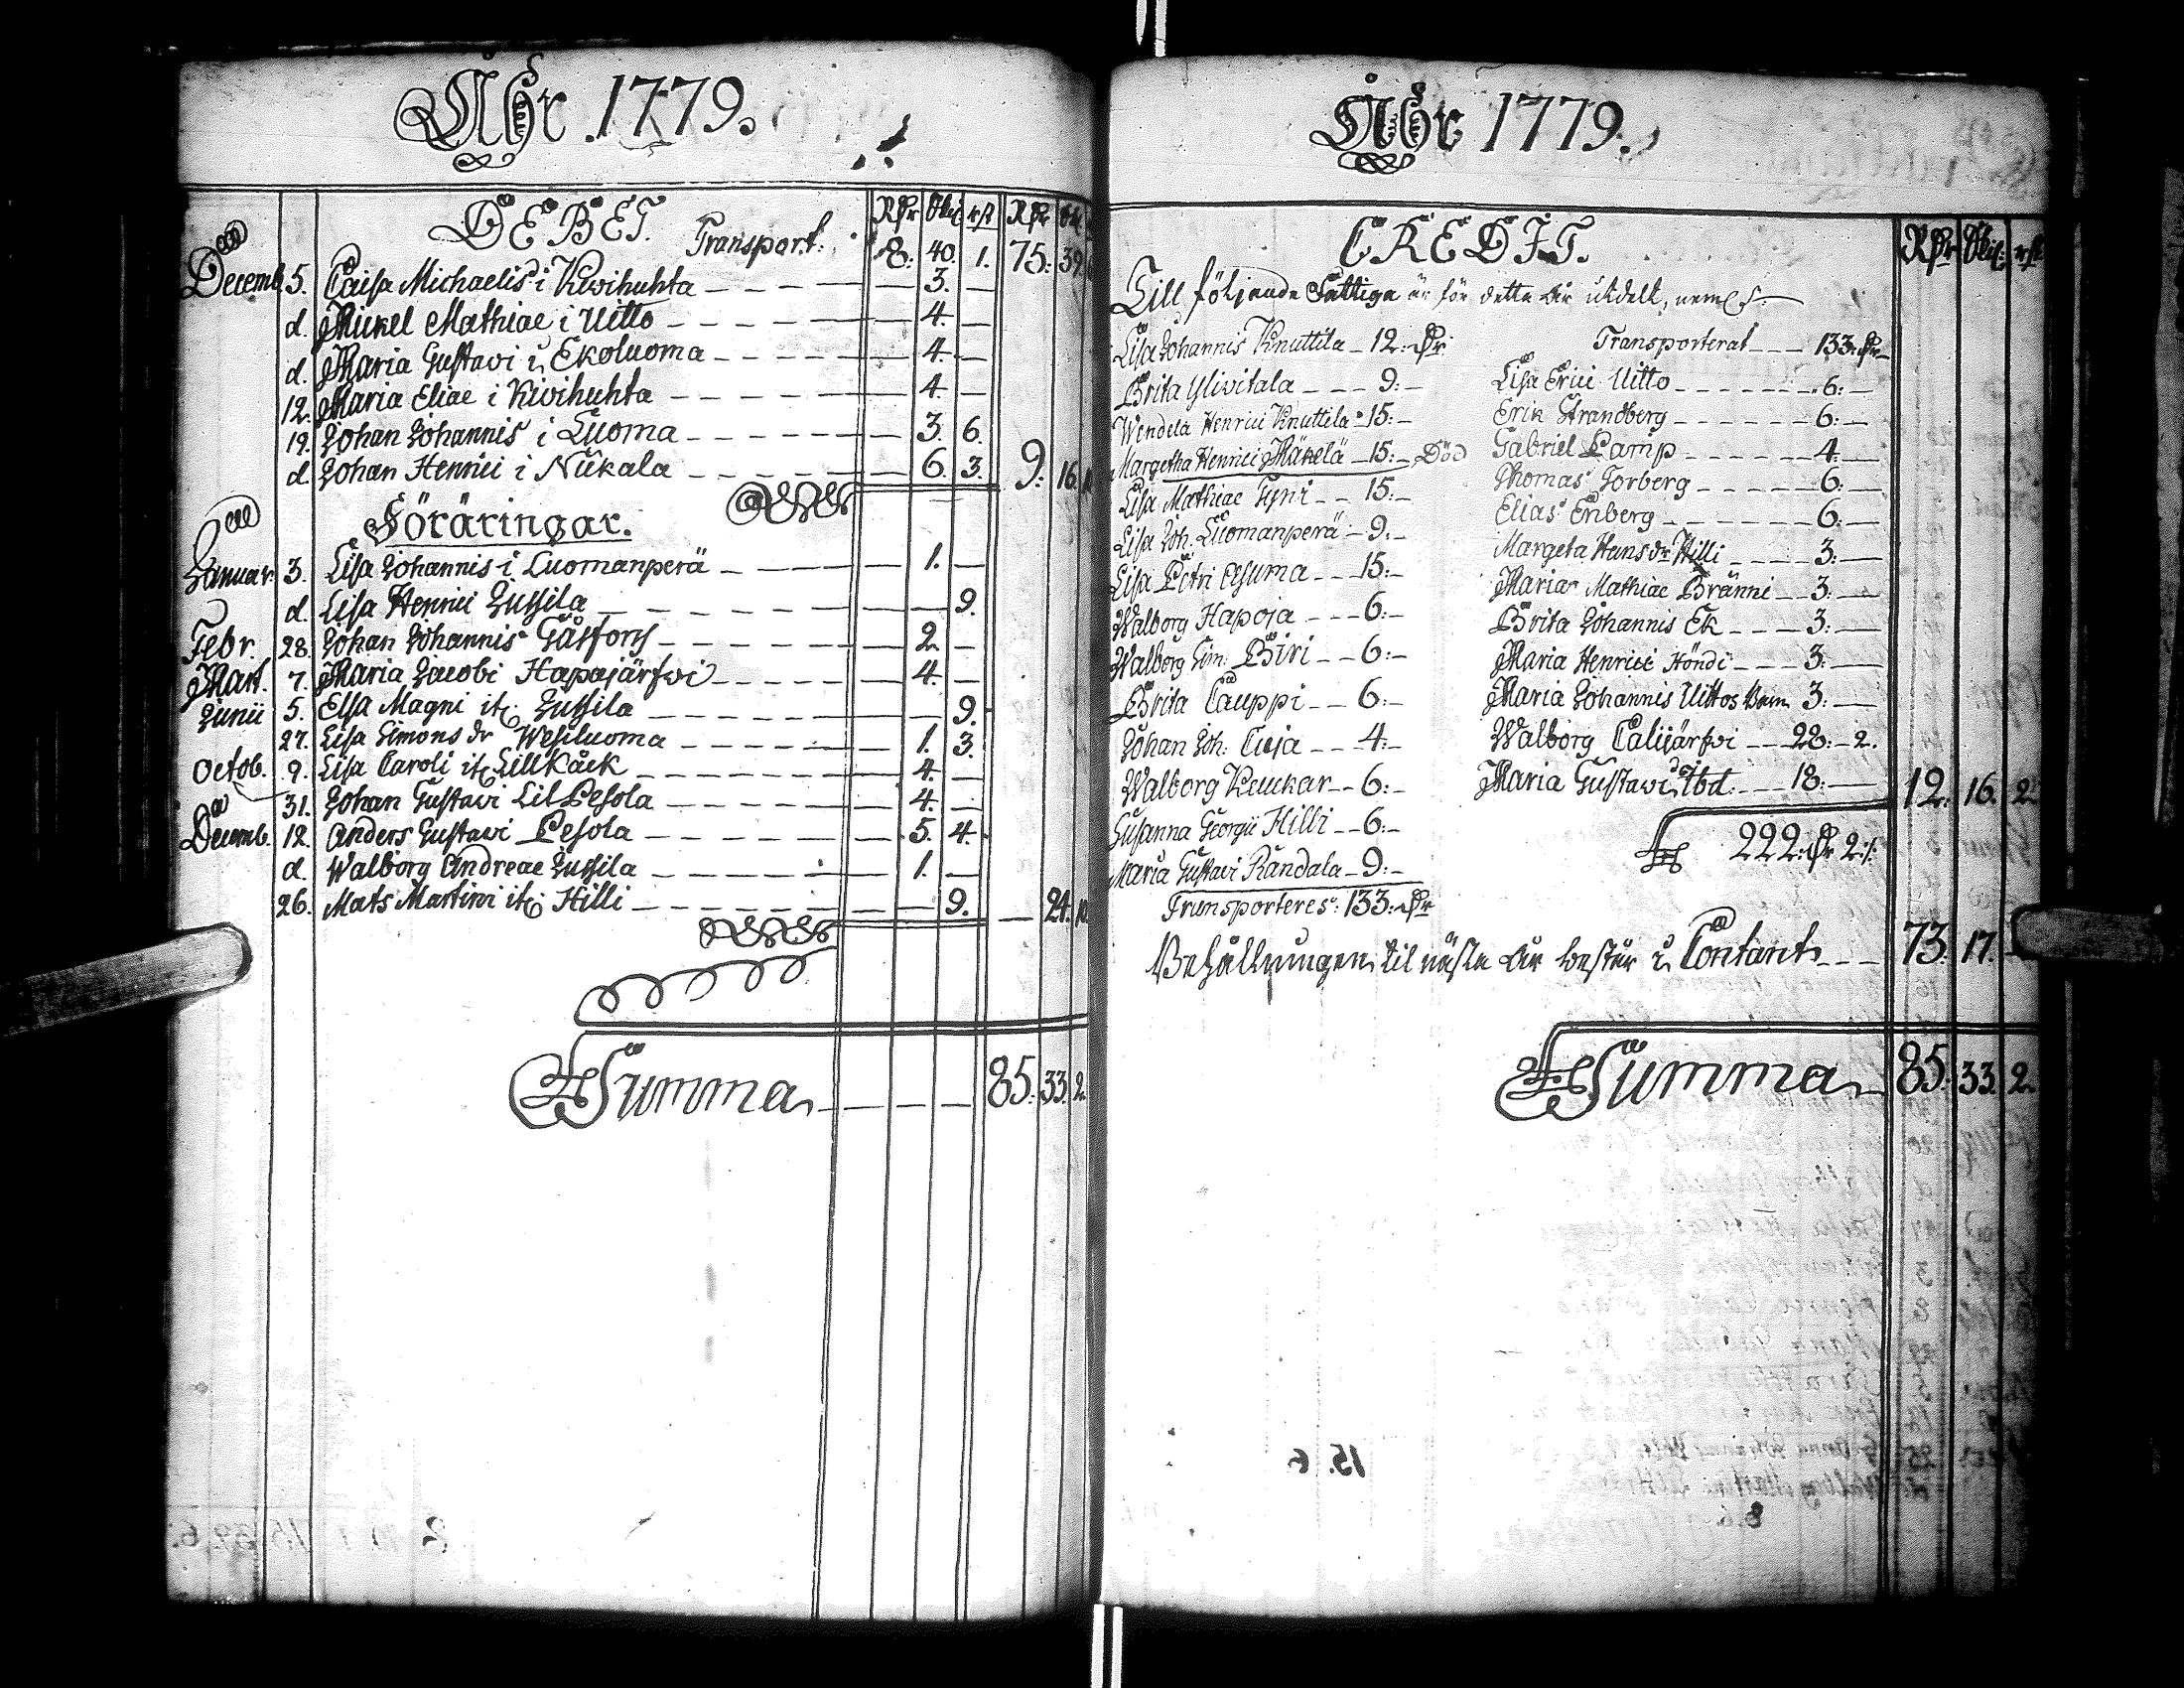 Åhr 1779.
DEBET. Rdr Skil: rst Rdr Sk
Transport. 8: 40. 1. 75: 39.
Decemb. 5. Caisa Michaelis i Kivihuhta — 3. —
d. Mickel Mathiae i Uitto — 4. —
d. Maria Gustavi i Ekoluoma — 4. —
12. Maria Eliae i Kivihuhta — 4. —
19. Johan Johannis i Luoma — 3. 6.
d. Johan Henrici i Niikala — 6. 3. 9: 16.
Föräringar.
Januar. 3. Lisa Johannis i Luomanperä — 1. —
d. Lisa Henrici Jussila — 9.
Febr. 28. Johan Johannis Gåsfors — 2 —
Mart. 7. Maria Jacobi Hapajärfvi — 4. —
Junii 5. Elsa Magni it: Jussila — 9.
27. Lisa Simons dr Wesiluoma — 1. 3.
Octob. 9. Lisa Caroli it: Lillkåck — 4. —
31. Johan Gustavi Lil Pesola — 4. —
Decemb. 12. Anders Gustavi Pesola — 5. 4.
d. Walborg Andreae Jussila — 1. —
26. Mats Martini it: Hilli — 9. — 24. 10
Summa — 85: 33. 2.
Åhr 1779.
CREDIT. Rdr Skil: rst
Till följande Fattige är för detta år utdelt, neml:
Lisa Johannis Knuttila — 12: dr
Brita Ylivitala — 9: —
Wendela Henrici Knuttila — 15: —
Margetha Henrici Mäkelä — 15: — Död
Lisa Mathiae Gyni — 15: —
Lisa Joh. Luomanperä — 9: —
Lisa Petri Asuma — 15: —
Walborg Hapoja — 6: —
Walborg Sim: Biri — 6: —
Brita Cauppi — 6: —
Johan Joh: Cuja — 4: —
Walborg Keukar — 6: —
Susanna Georgii Hilli — 6: —
Maria Gustavi Randala — 9: —
Transporteres: 133: dr
Transporterat — 133: dr
Lisa Erici Uitto — 6: —
Erik Strandberg — 6: —
Gabriel Lamp — 4: —
Thomas Forberg — 6: —
Elias Enberg — 6: —
Margeta Hans dr Hilli — 3: —
Maria Mathiae Bränni — 3: —
Brita Johannis Ek — 3: —
Maria Henrici Höndi — 3: —
Maria Johannis Uittos Barn 3: —
Walborg Calijärfvi — 22: — 2.
Maria Gustavi Ibd. — 18: — 12: 16. 2.
222: dr 2:
Behållningen til nästa år består i Contant — 73: 17. —
Summa — 85: 33. 2.